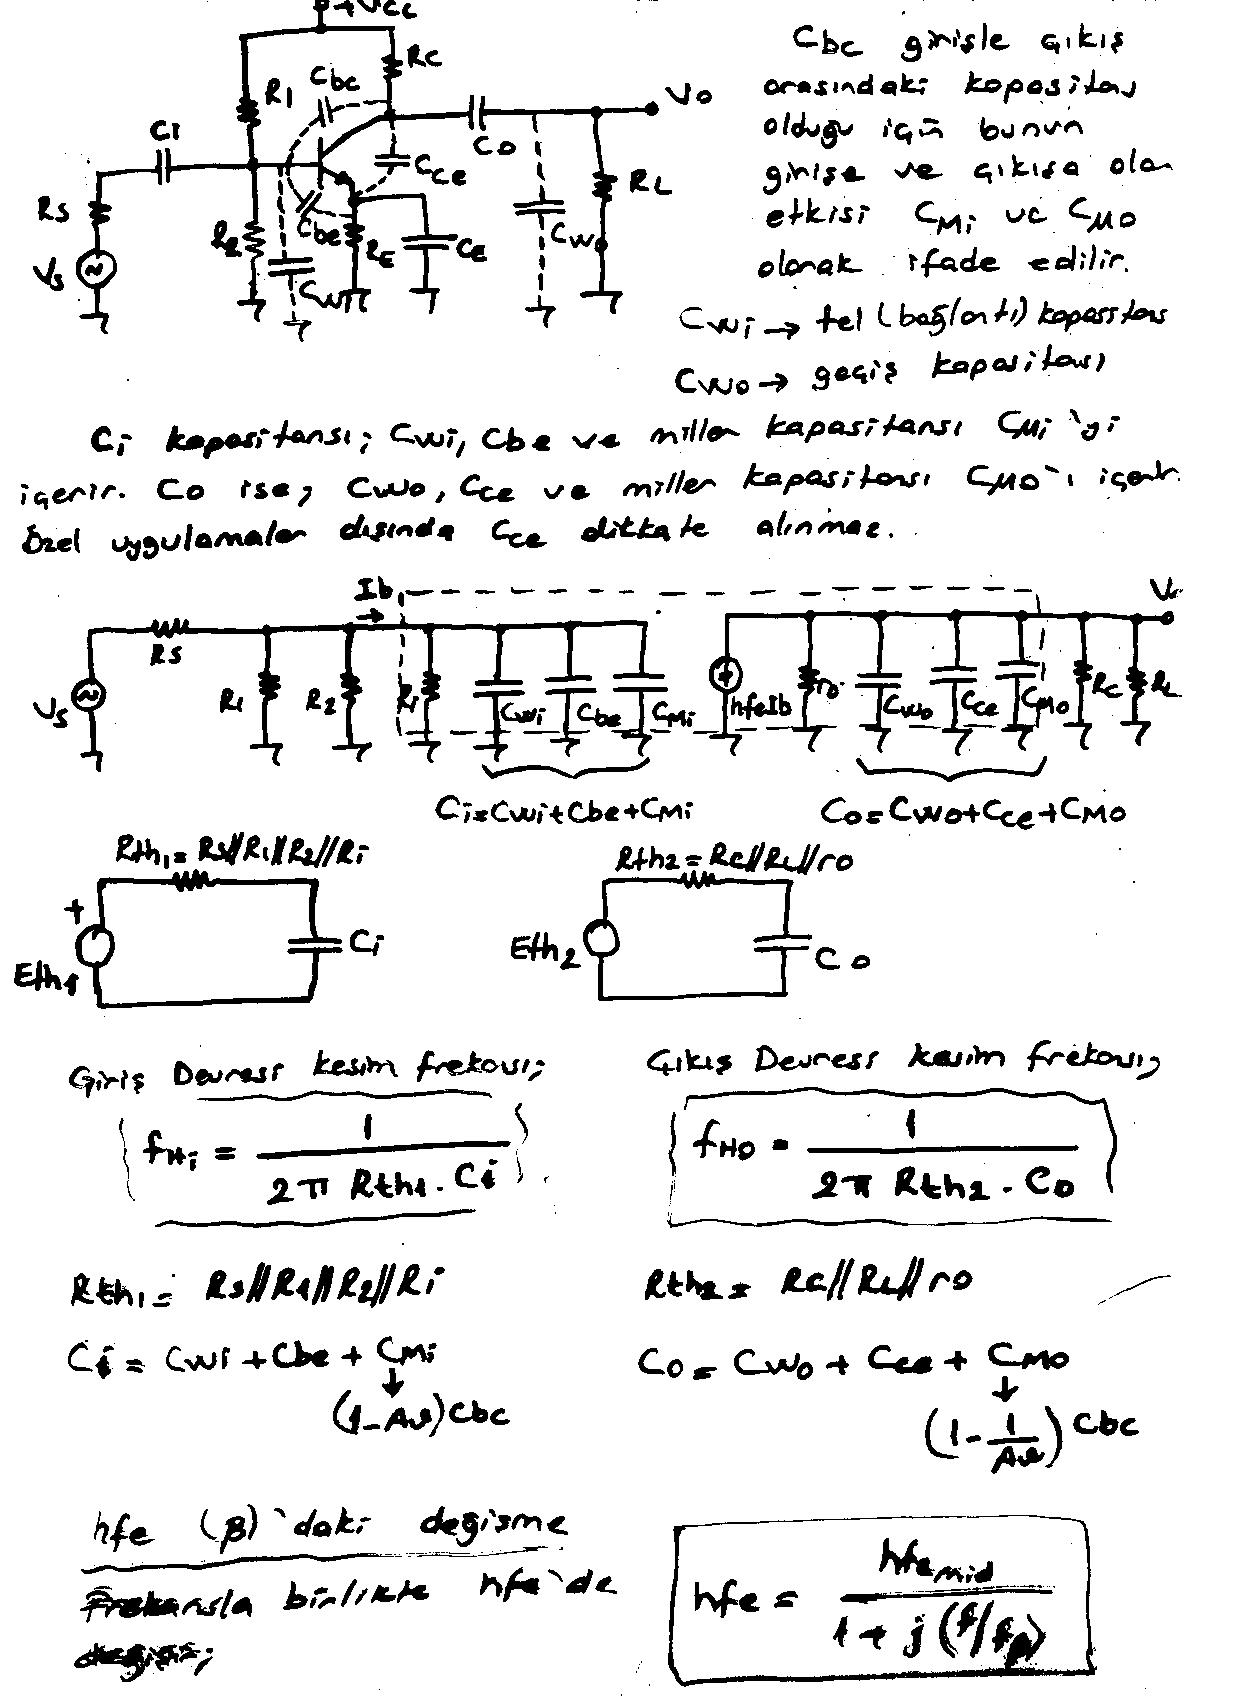 +Vcc
Cbc
RC
R1
Vo
C1
Co
Cce
RL
Rs
R2
Cbe
RE
CE
Cwo
Vs
Cwi
Cbc girişle çıkış
arasındaki kapasitans
olduğu için bunun
girişe ve çıkışa olan
etkisi CMi ve CMo
olarak ifade edilir.
Cwi → tel (bağlantı) kapasitans
Cwo → geçiş kapasitansı
Ci kapasitansı; Cwi, Cbe ve miller kapasitansı CMi'yi
içerir. Co ise; Cwo, Cce ve miller kapasitansı CMo'ı içerir.
Özel uygulamalar dışında Cce dikkate alınmaz.
Ib
Rs
Vs
R1
R2
Ri
Cwi
Cbe
CMi
hfeIb
ro
Cwo
Cce
CMo
Rc
RL
Ci=Cwi+Cbe+CMi
Co=Cwo+Cce+CMo
Rth1=Rs//R1//R2//Ri
Rth2=Rc//RL//ro
+
Eth1
Ci
Eth2
Co
Giriş Devresi kesim frekansı;
Çıkış Devresi kesim frekansı;
fHi = 1 / 2π Rth1 . Ci
fHo = 1 / 2π Rth2 . Co
Rth1 = Rs//R1//R2//Ri
Rth2 = Rc//RL//ro
Ci = Cwi + Cbe + CMi
Co = Cwo + Cce + CMo
(1-Av)Cbc
(1 - 1/Av) Cbc
hfe (β)'daki değişme
Frekansla birlikte hfe'de
değişir;
hfe = hfemid / 1 + j (f/fβ)